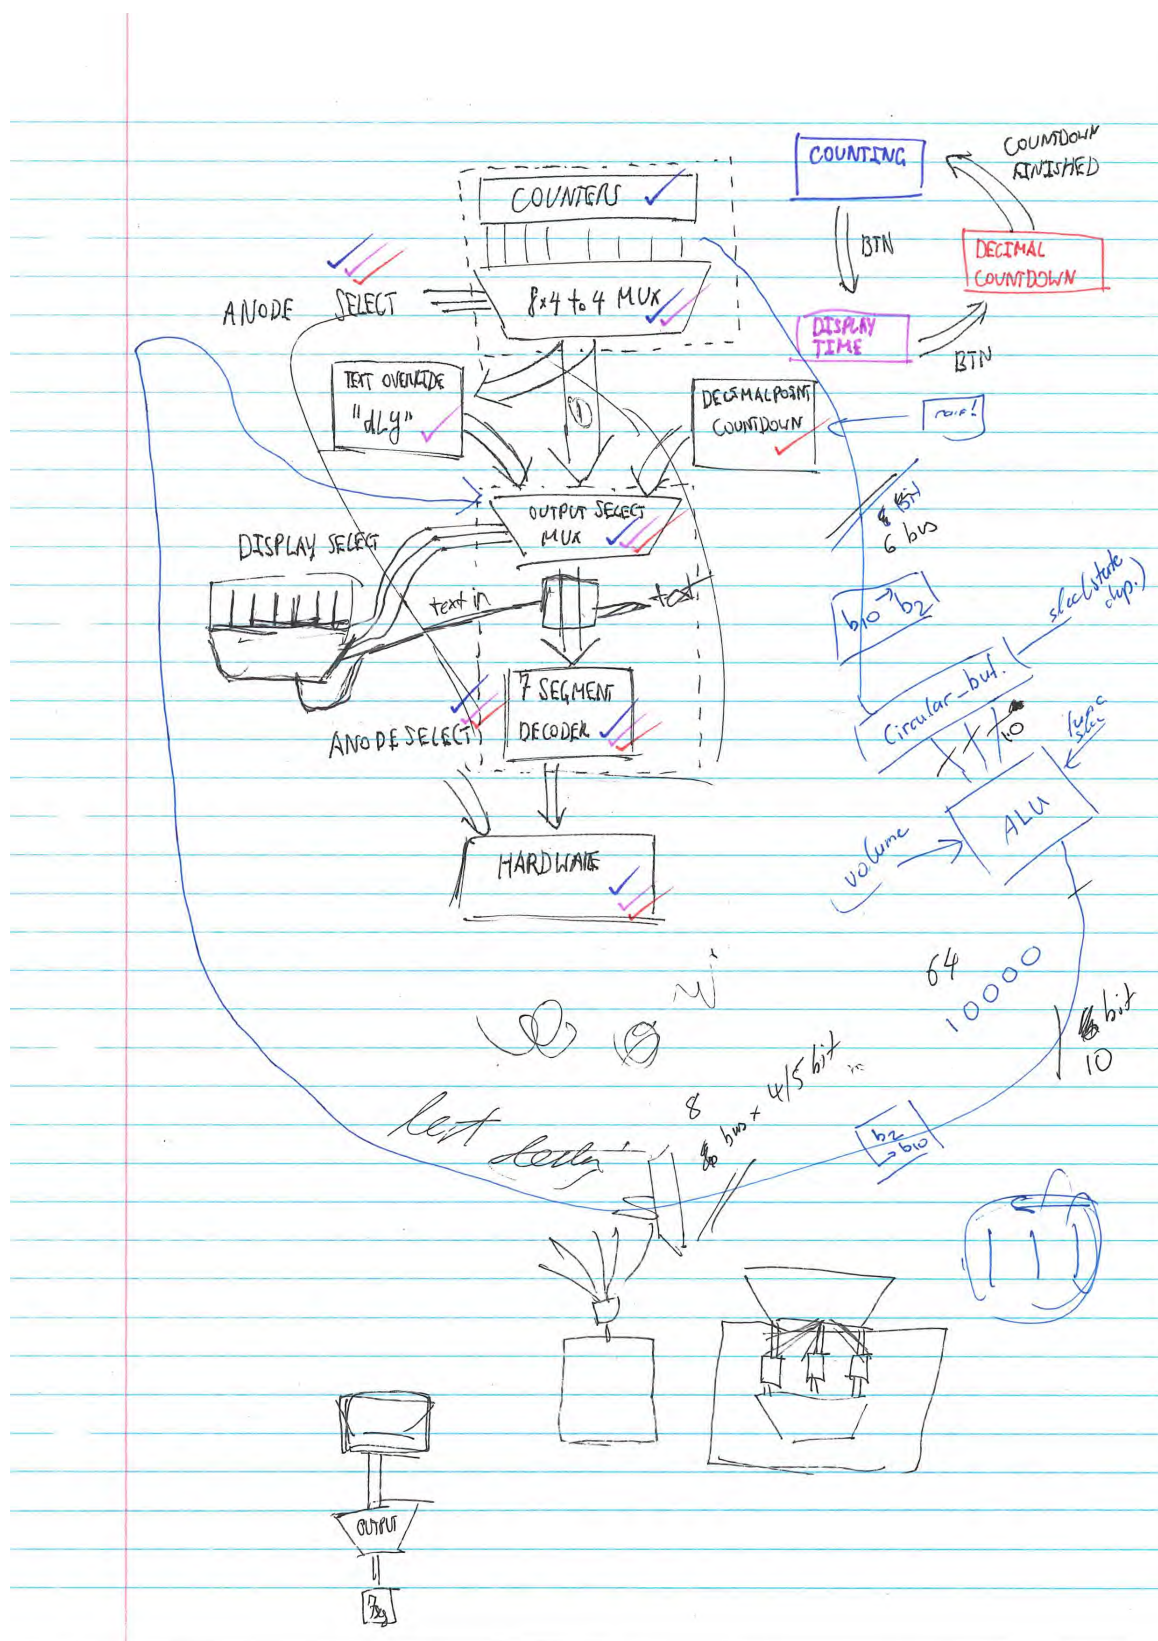 COUNTERS
8x4 to 4 MUX
ANODE SELECT
TEXT OVERRIDE
"dLy"
1
DECIMALPOINT
COUNTDOWN
OUTPUT SELECT
MUX
DISPLAY SELECT
text in
text
7 SEGMENT
DECODER
ANODE SELECT
HARDWARE
COUNTING
COUNTDOWN
FINISHED
BTN
DECIMAL
COUNTDOWN
DISPLAY
TIME
BTN
Bit
6 bus
b10 → b2
Circular_buf.
10
ALU
volume
64
10000
bit
10
8
bus x 4/5 bit
b2
→ b10
OUTPUT
7seg